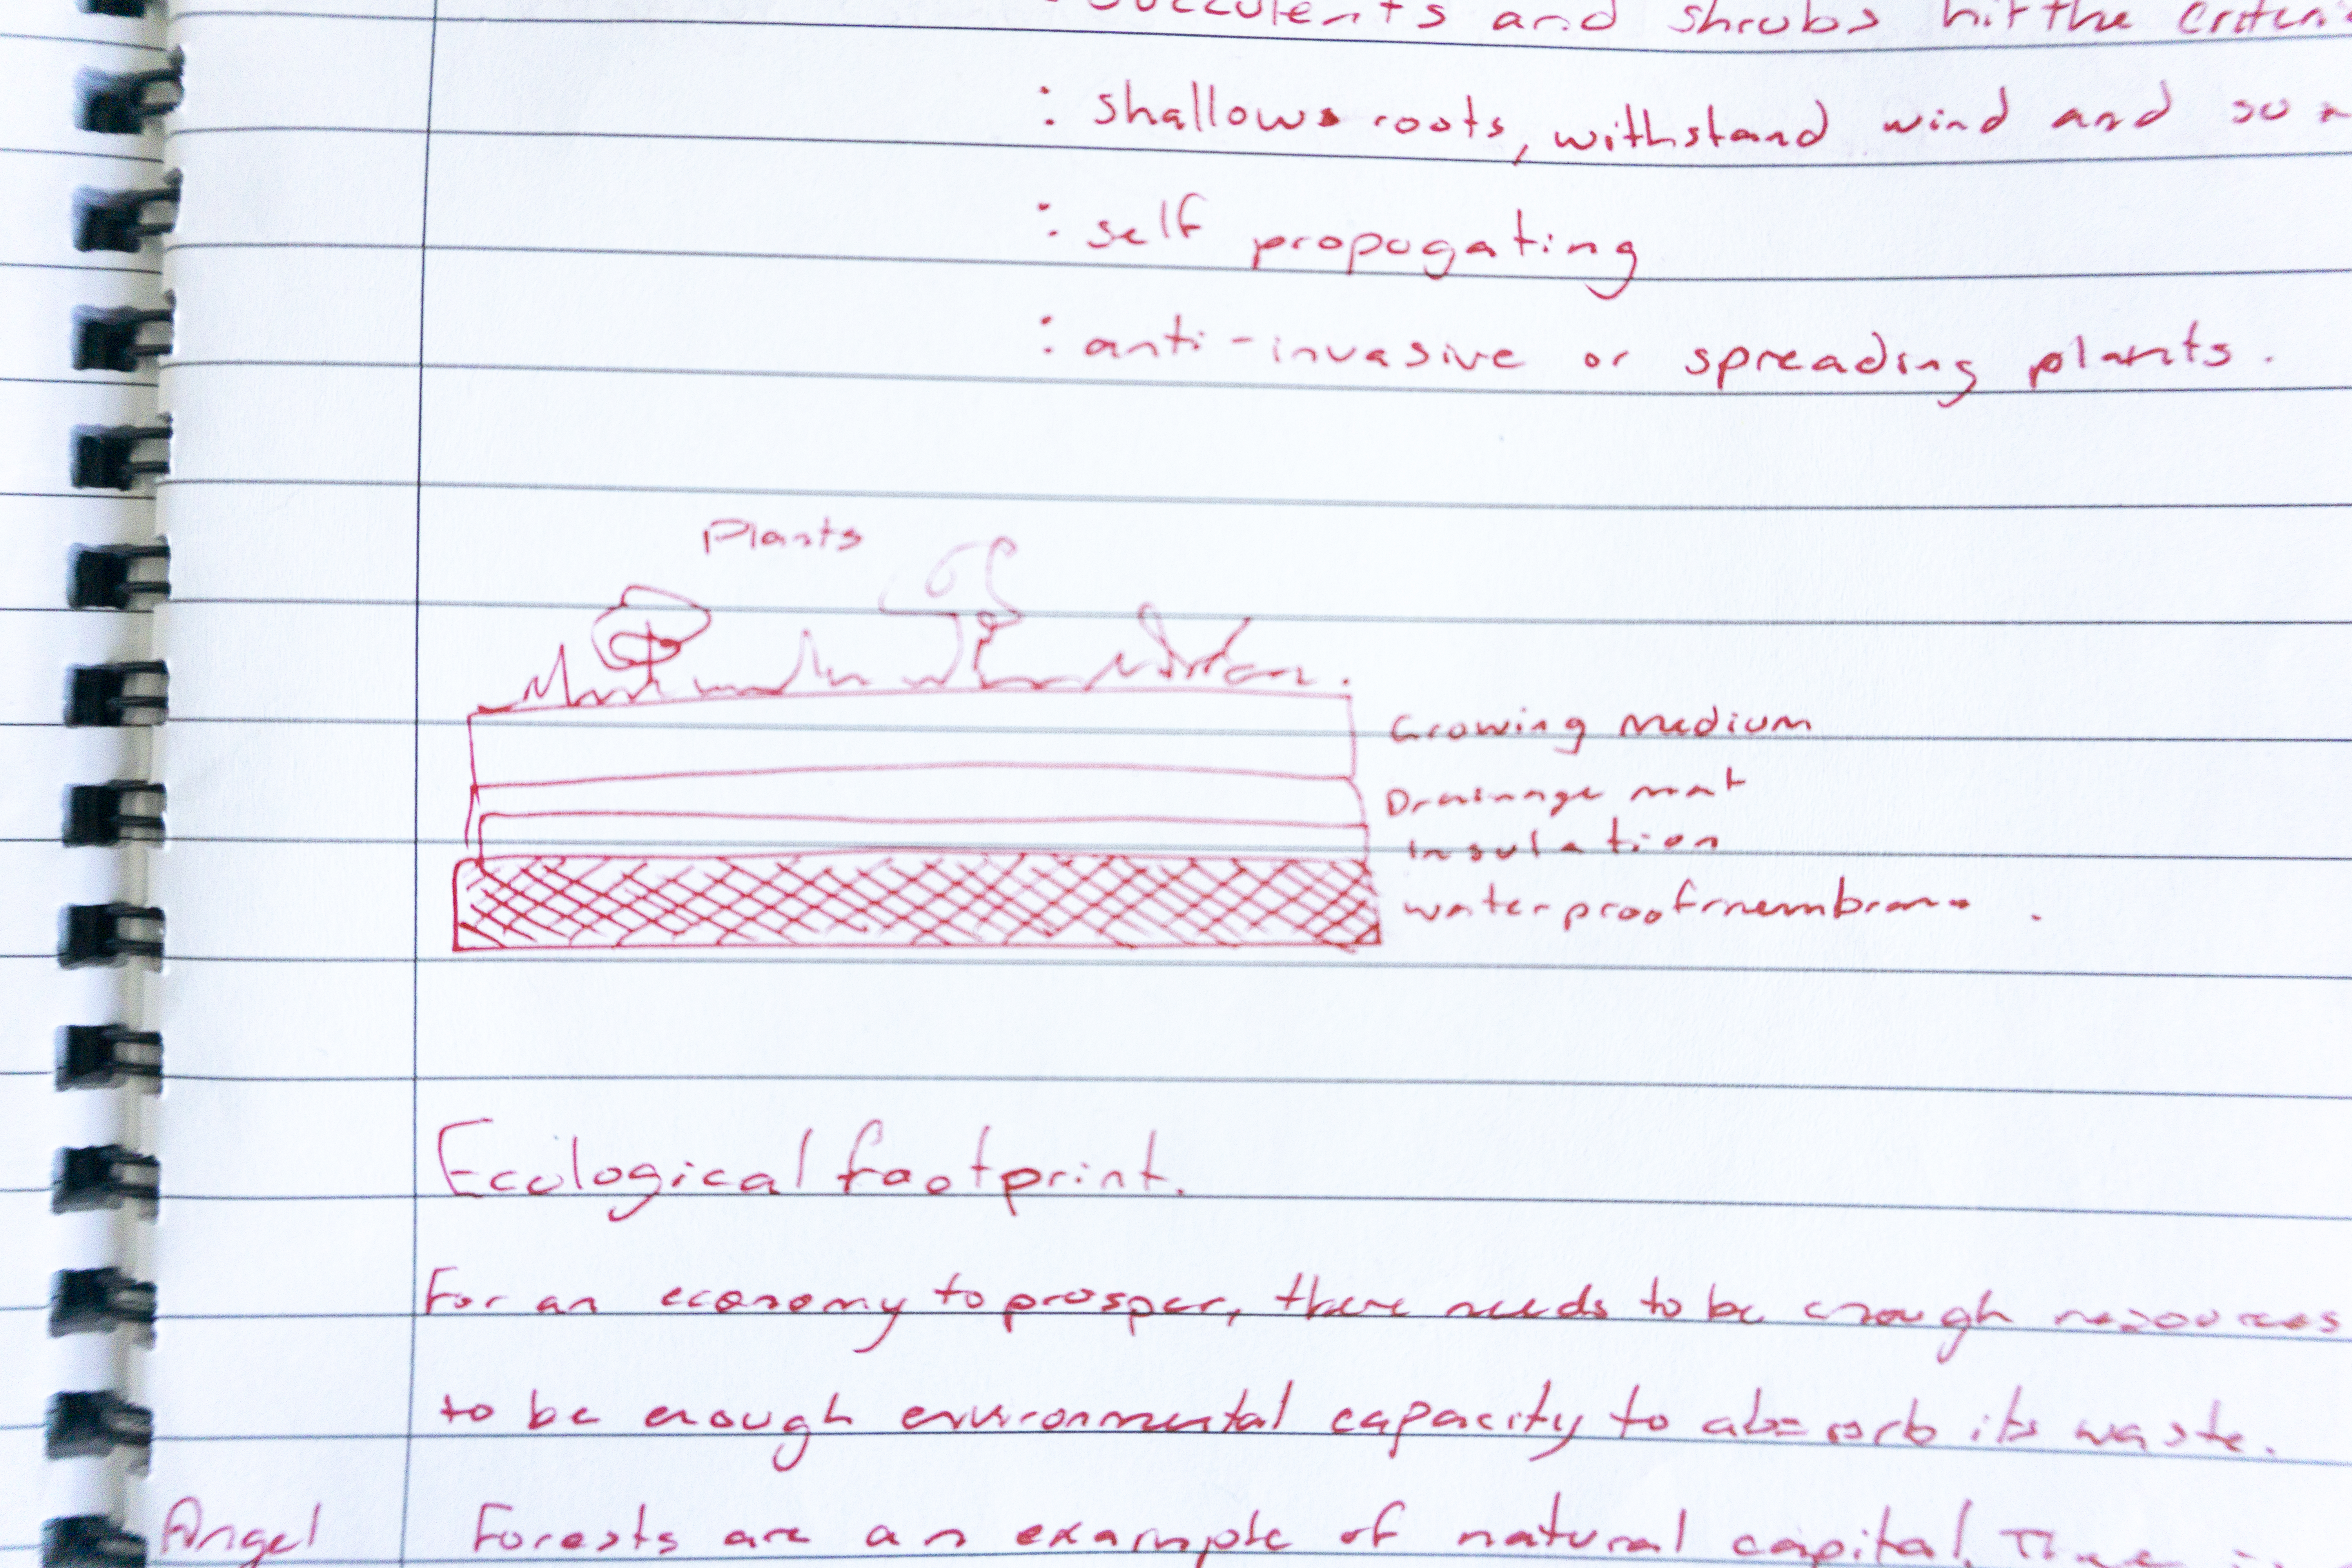 Succulents and shrubs hit the
: shallow roots, withstand wind and
: self propogating
: anti-invasive or spreading plants.
Plants
Growing Medium
Drainage mat
Insulation
waterproof membrane.
Ecological footprint.
For an economy to prosper, there needs to be enough resources
to be enough environmental capacity to absorb its waste.
Angel Forests are an example of natural capital.